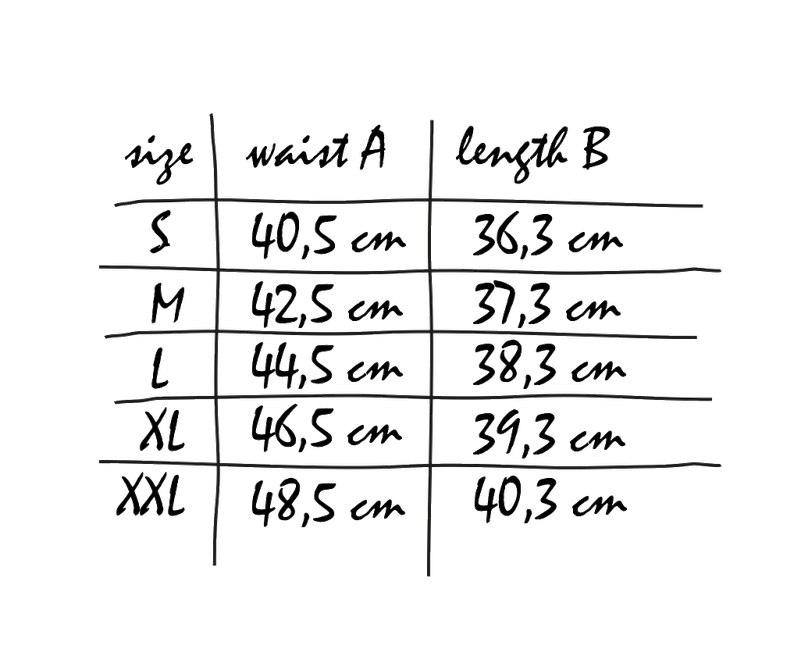 size waist A length B
S 40,5 cm 36,3 cm
M 42,5 cm 37,3 cm
L 44,5 cm 38,3 cm
XL 46,5 cm 39,3 cm
XXL 48,5 cm 40,3 cm